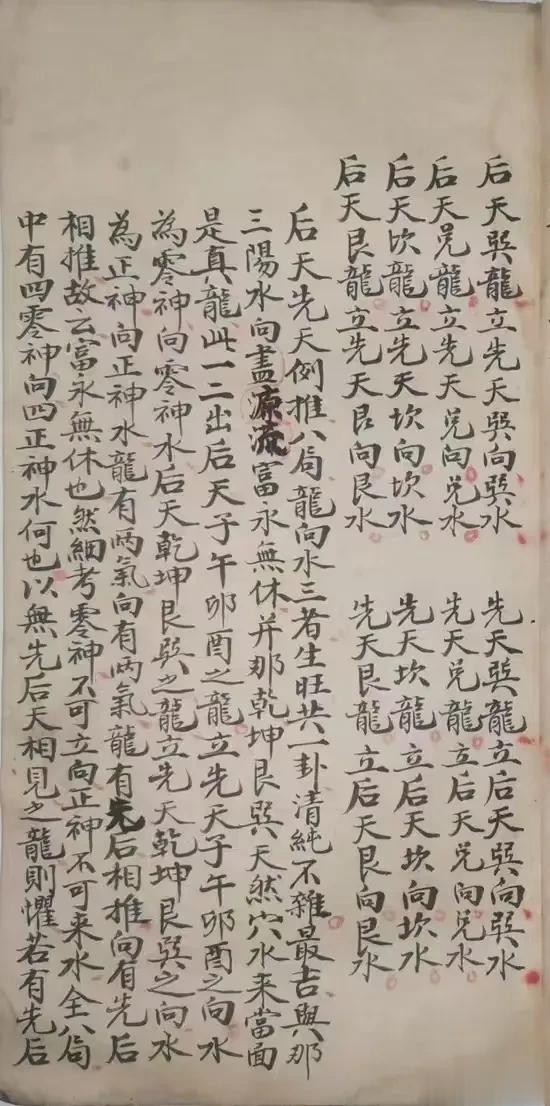 后天巽龍立先天巽向巽水 先天巽龍立后天巽向巽水
后天兑龍立先天兑向兑水 先天兑龍立后天兑向兑水
后天坎龍立先天坎向坎水 先天坎龍立后天坎向坎水
后天艮龍立先天艮向艮水 先天艮龍立后天艮向艮水
后天先天例推八局龍向水三者生旺共一卦清純不雜最吉與那
三陽水向盡源流富永無休并那乾坤艮巽天然穴水来當面
是真龍此一二出后天子午卯酉之龍立先天子午卯酉之向水
為零神向零神水后天乾坤艮巽之龍立先天乾坤艮巽之向水
為正神向正神水龍有两氣向有两氣龍有先后相推向有先后
相推故云富永無休也然細考零神不可立向正神不可来水全八局
中有四零神向四正神水何也以無先后天相見之龍則懼若有先后